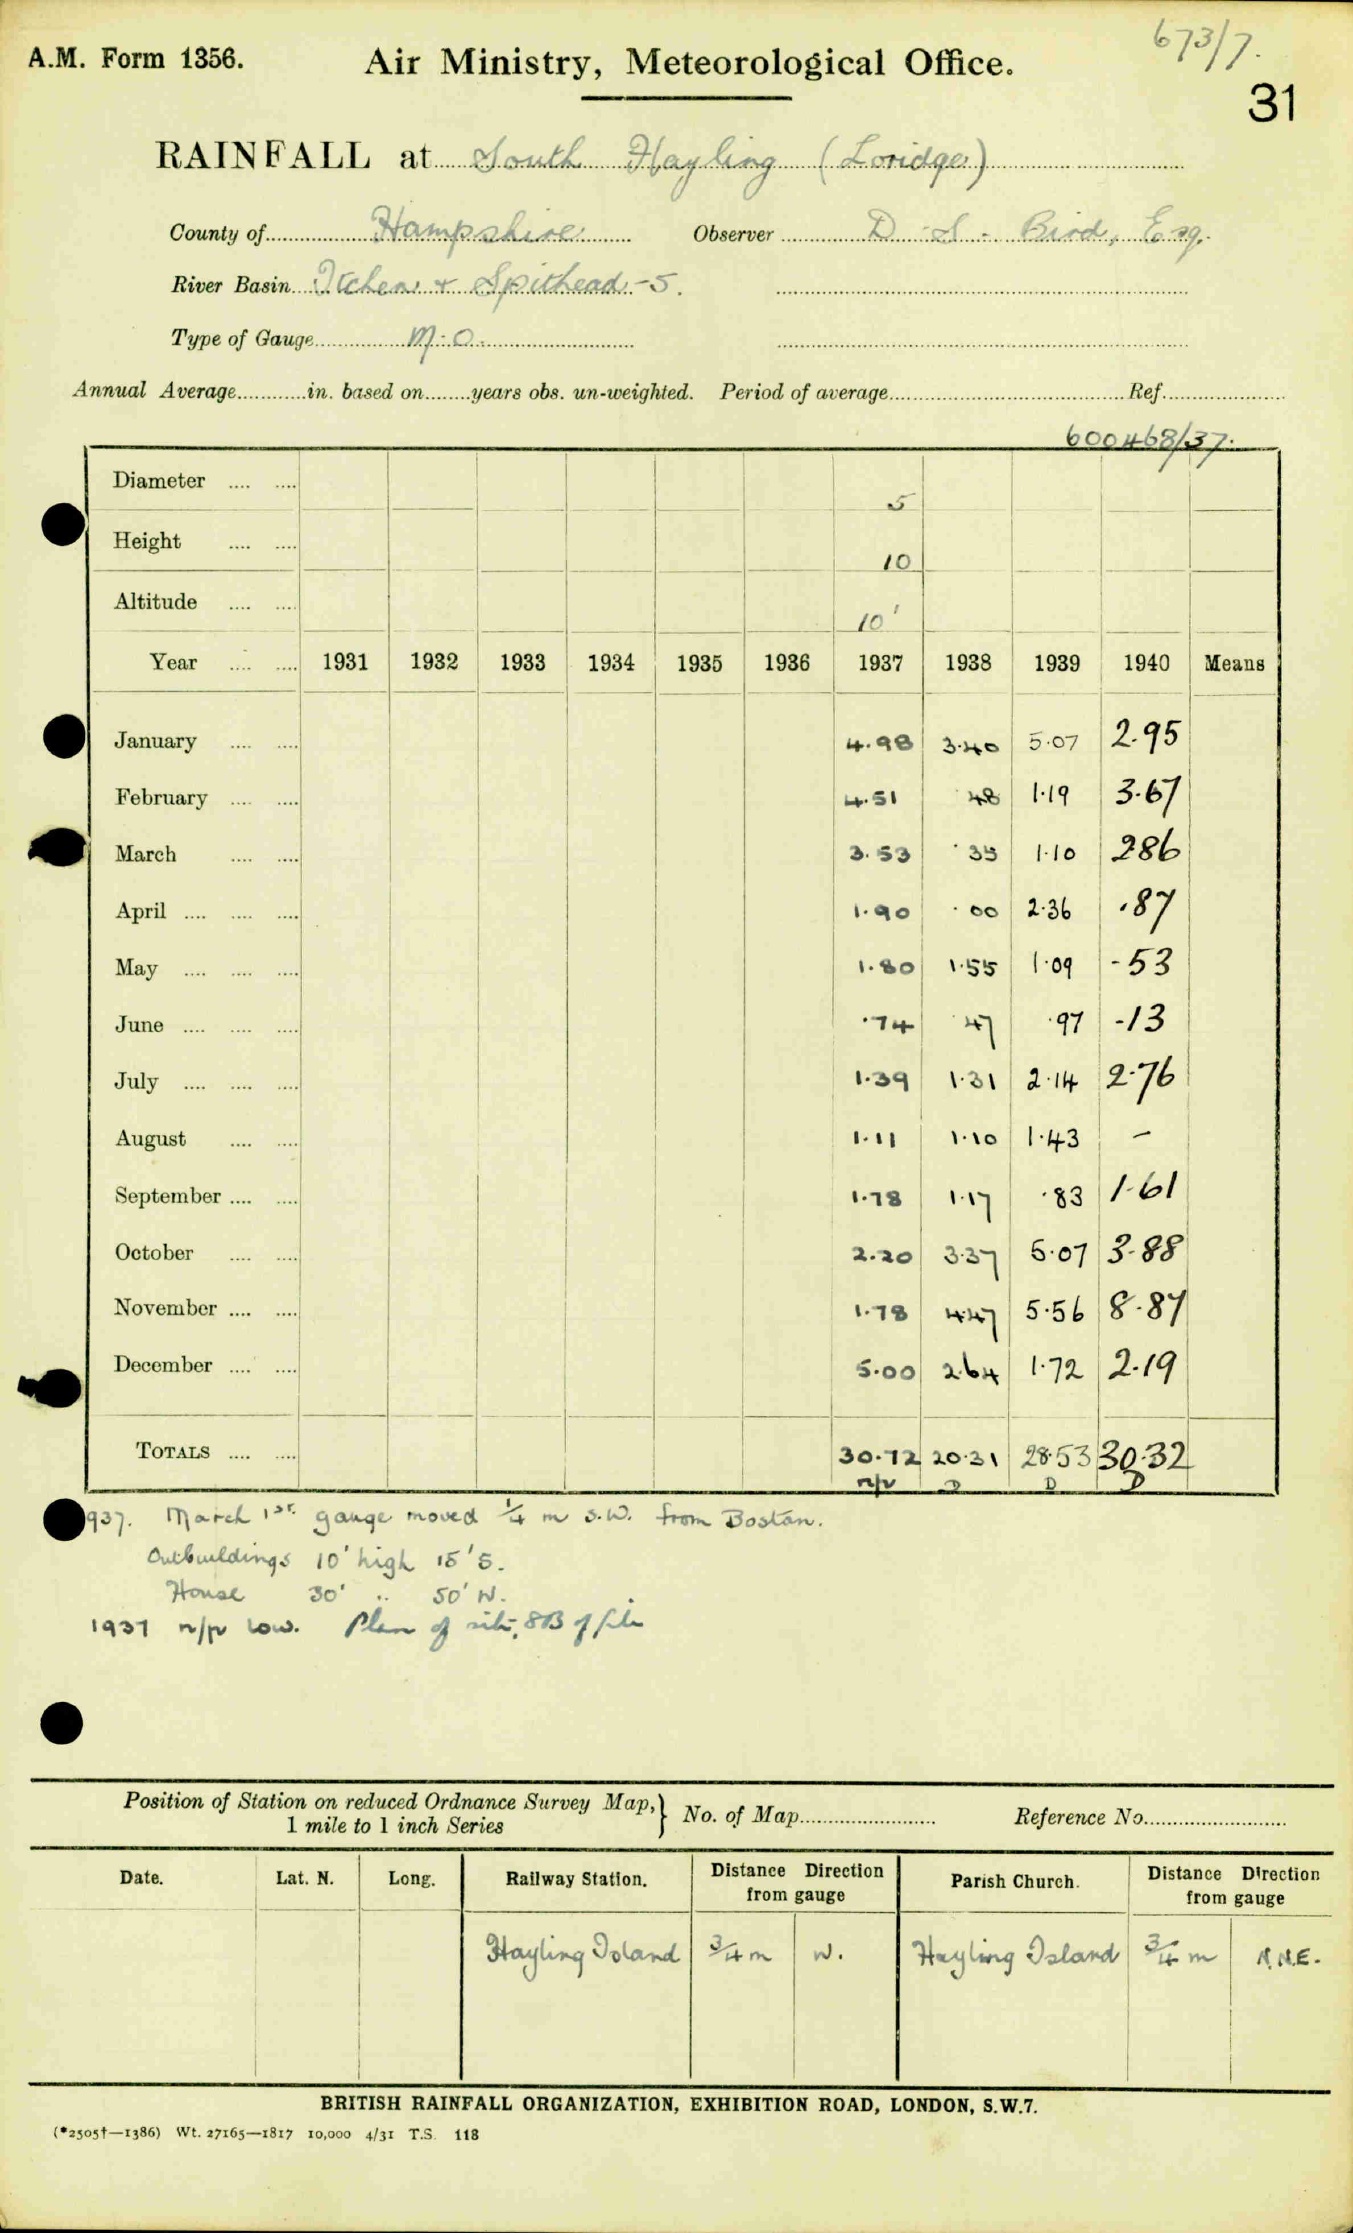 673/7.
A.M. Form 1356. Air Ministry, Meteorological Office.
31
RAINFALL at South Hayling (Loridge)
County of Hampshire Observer D. S. Bird, Esq.
River Basin Itchen & Spithead -5.
Type of Gauge M.O.
Annual Average in. based on years obs. un-weighted. Period of average Ref.
600468/37.
Diameter 5
Height 10
Altitude 10'
Year 1931 1932 1933 1934 1935 1936 1937 1938 1939 1940 Means
January 4.98 3.40 5.07 2.95
February 4.51 48 1.19 3.67
March 3.53 .35 1.10 2.86
April 1.90 .00 2.36 .87
May 1.80 1.55 1.09 -53
June .74 47 .97 -13
July 1.39 1.31 2.14 2.76
August 1.11 1.10 1.43 -
September 1.78 1.17 .83 1.61
October 2.20 3.37 5.07 3.88
November 1.78 4.47 5.56 8.87
December 5.00 2.64 1.72 2.19
TOTALS 30.72 20.31 28.53 30.32
n/r D D D
937. March 1st. gauge moved 1/4 m S.W. from Boston.
Outbuildings 10' high 15' S.
House 30' ,, 50' W.
1937 n/r low. Plan of site, 8B of file
Position of Station on reduced Ordnance Survey Map,} No. of Map Reference No.
1 mile to 1 inch Series
Date. Lat. N. Long. Railway Station. Distance Direction from gauge Parish Church. Distance Direction from gauge
Hayling Island 3/4 m W. Hayling Island 3/4 m N.N.E.
BRITISH RAINFALL ORGANIZATION, EXHIBITION ROAD, LONDON, S.W.7.
(*2505†—1386) Wt. 27165—1817 10,000 4/31 T.S. 118